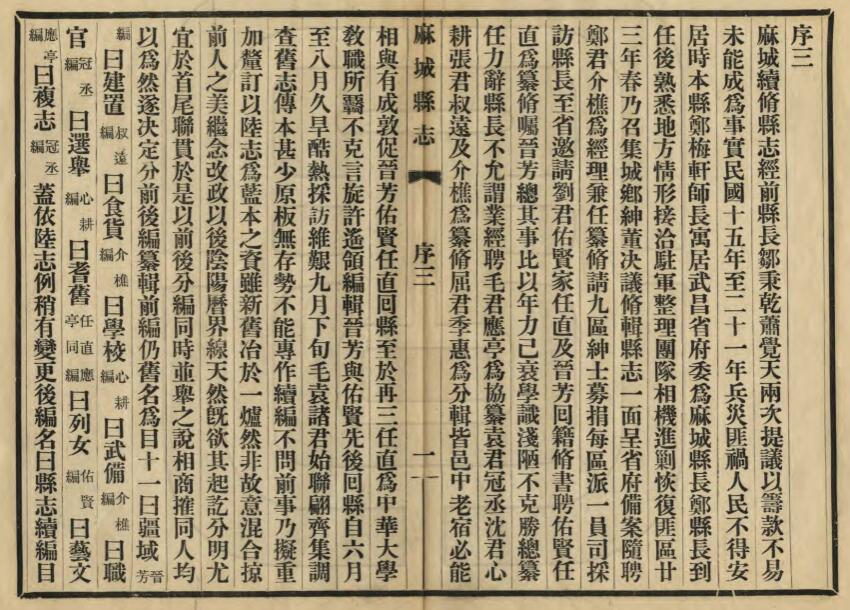 序三
麻城續脩縣志經前縣長鄒秉乾蕭覺天兩次提議以籌款不易
未能成爲事實民國十五年至二十一年兵災匪禍人民不得安
居時本縣鄭梅軒師長寓居武昌省府委爲麻城縣長鄭縣長到
任後熟悉地方情形接洽駐軍整理團隊相機進剿恢復匪區廿
三年春乃召集城鄉紳董決議脩輯縣志一面呈省府備案隨聘
鄭君介樵爲經理兼任纂脩請九區紳士募捐每區派一員司採
訪縣長至省邀請劉君佑賢家任直及晉芳回籍脩書聘佑賢任
直爲纂脩囑晉芳總其事比以年力已衰學識淺陋不克勝總纂
任力辭縣長不允謂業經聘毛君應亭爲協纂袁君冠丞沈君心
耕張君叔遠及介樵爲纂脩屈君季惠爲分輯皆邑中老宿必能
麻城縣志 序三 一
相與有成敦促晉芳佑賢任直回縣至於再三任直爲中華大學
敎職所羈不克言旋許遙領編輯晉芳與佑賢先後回縣自六月
至八月久旱酷熱採訪維艱九月下旬毛袁諸君始聯翩齊集調
查舊志傳本甚少原板無存勢不能專作續編不問前事乃擬重
加釐訂以陸志爲藍本之資雖新舊冶於一爐然非故意混合掠
前人之美繼念改政以後陰陽曆界線天然旣欲其起訖分明尤
宜於首尾聯貫於是以前後分編同時並舉之說相商搉同人均
以爲然遂決定分前後編纂輯前編仍舊名爲目十一曰疆域晉芳
編曰建置叔遠編曰食貨介樵編曰學校心耕編曰武備介樵編曰職
官冠丞編曰選舉心耕編曰耆舊任直應亭同編曰列女佑賢編曰藝文
應亭編曰複志冠丞編蓋依陸志例稍有變更後編名曰縣志續編目